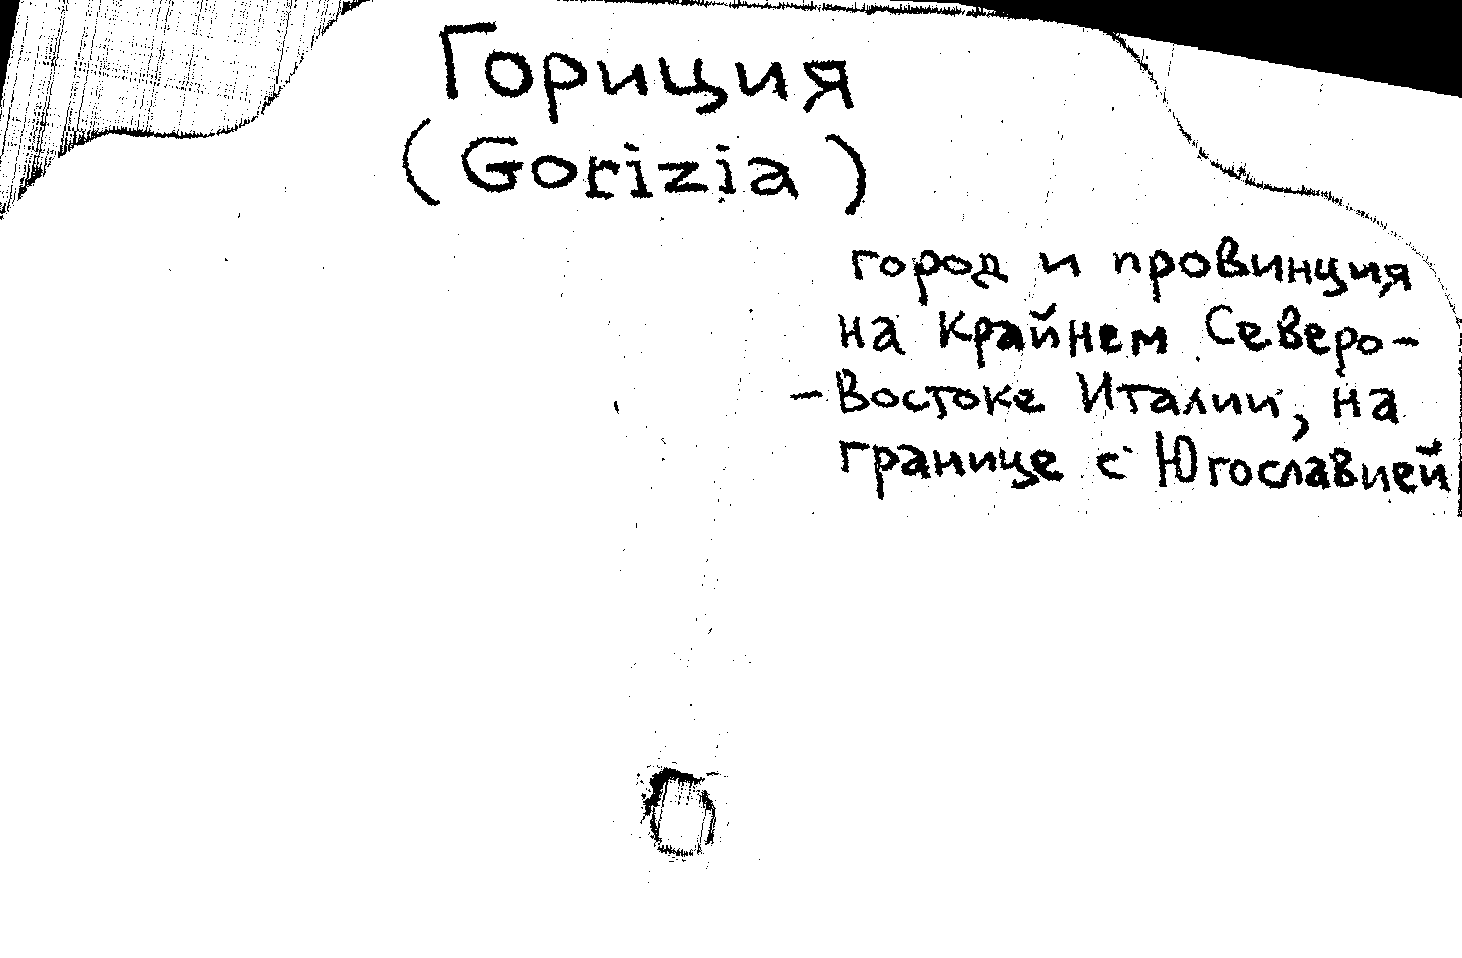 Гориция
(Gorizia)
город и провинция
на Крайнем Северо-
-Востоке Италии, на
границе с Югославией